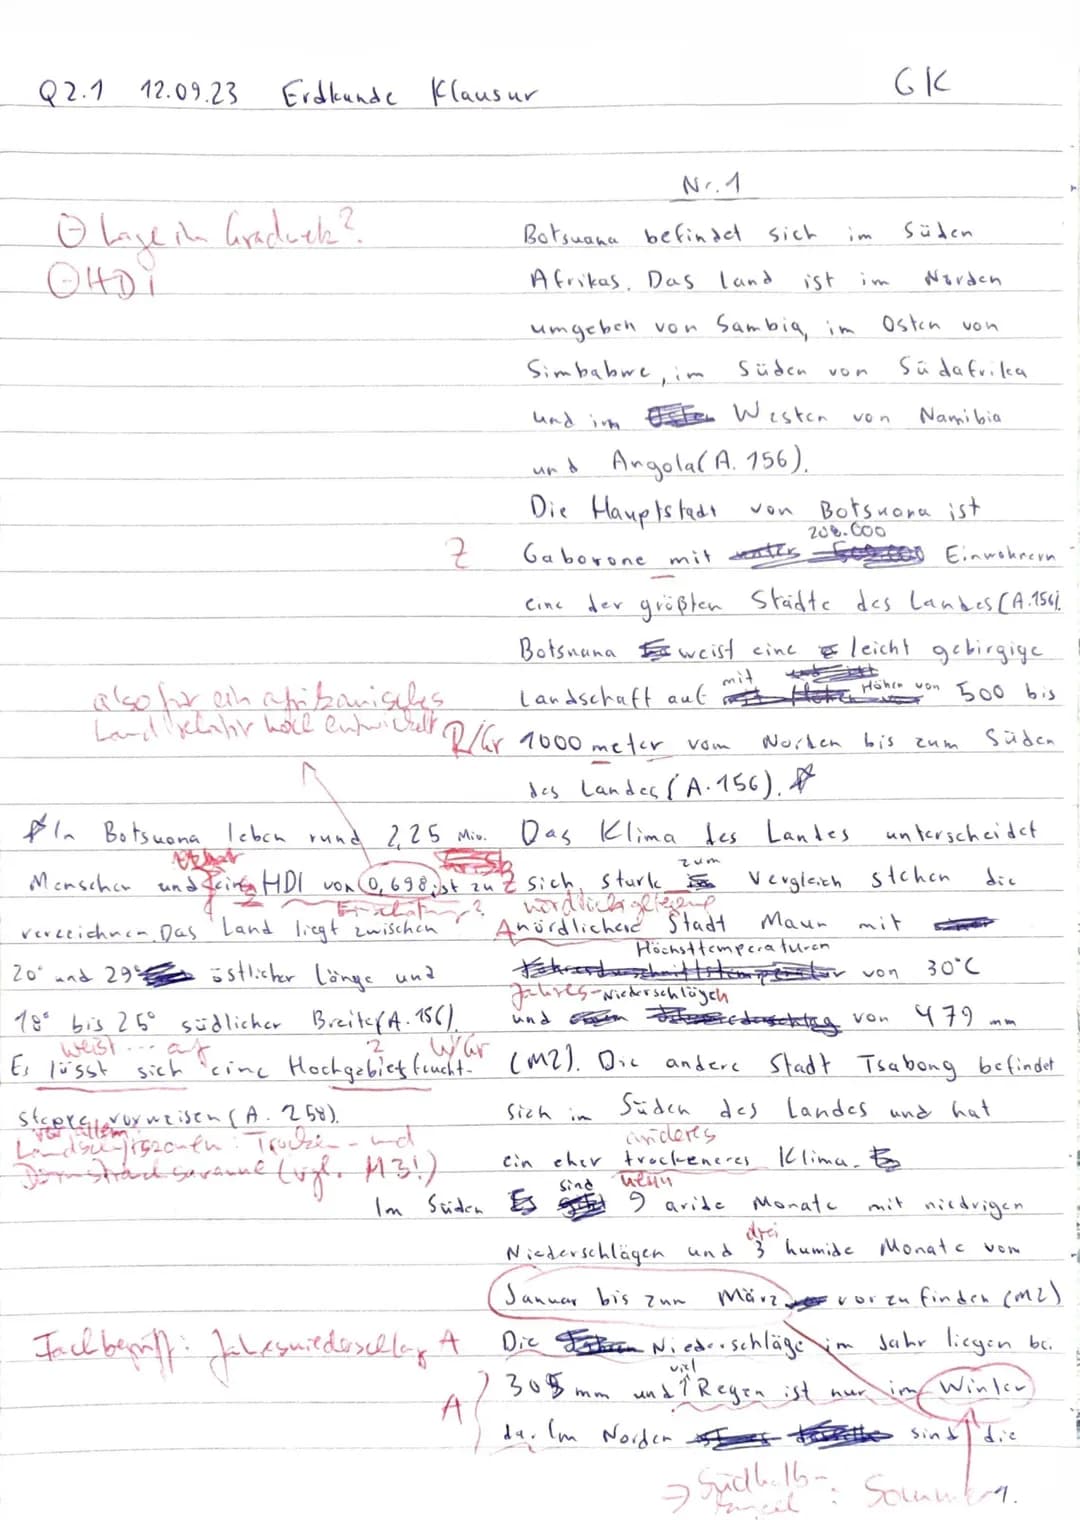 Q2.1 12.09.23 Erdkunde Klausur GK
Nr. 1
⊖ Lage im Gradnetz?
⊖ HDI
Botsuana befindet sich im Süden
Afrikas. Das Land ist im Norden
umgeben von Sambia, im Osten von
Simbabwe, im Süden von Südafrika
und im Westen von Namibia
und Angola (A. 156).
Die Hauptstadt von Botsuana ist
208.000
Z Gaborone mit Einwohnern
eine der größten Städte des Landes (A.156).
Botsuana weist eine leicht gebirgige
Landschaft auf mit Höhen von 500 bis
R/Gr 1000 meter vom Norden bis zum Süden
des Landes (A. 156).
also für ein afrikanisches
Land relativ hoch entwickelt
In Botsuana leben rund 2,25 Mio.
Menschen und ein HDI von 0,698 ist zu
verzeichnen. Das Land liegt zwischen
20° und 29° östlicher Länge und
18° bis 25° südlicher Breite (A. 156).
weist ... auf
Z W/Gr
Es lässt sich eine Hochgebiet feucht-
steppe vorweisen (A. 258).
vor allem
Landschaftszonen: Trocken- und
Dornstrauchsavanne (vgl. M3!)
Das Klima des Landes unterscheidet
sich stark zum Vergleich stehen die
nördlich gelegene
A nördlichere Stadt Maun mit
Höchsttemperaturen von 30°C
Jahres-
und Niederschlägen von 479 mm
(M2). Die andere Stadt Tsabong befindet
sich im Süden des Landes und hat
arideres
ein eher trockeneres Klima.
neun
Im Süden sind 9 aride Monate mit niedrigen
drei
Niederschlägen und 3 humide Monate vom
Januar bis zum März vorzufinden (M2)
Fachbegriff: Jahresniederschlag A
Die Niederschläge im Jahr liegen be.
305 mm und viel Regen ist nur im Winter
A
da. Im Norden sind die
→ Südhalb-
kugel : Sommer
1.